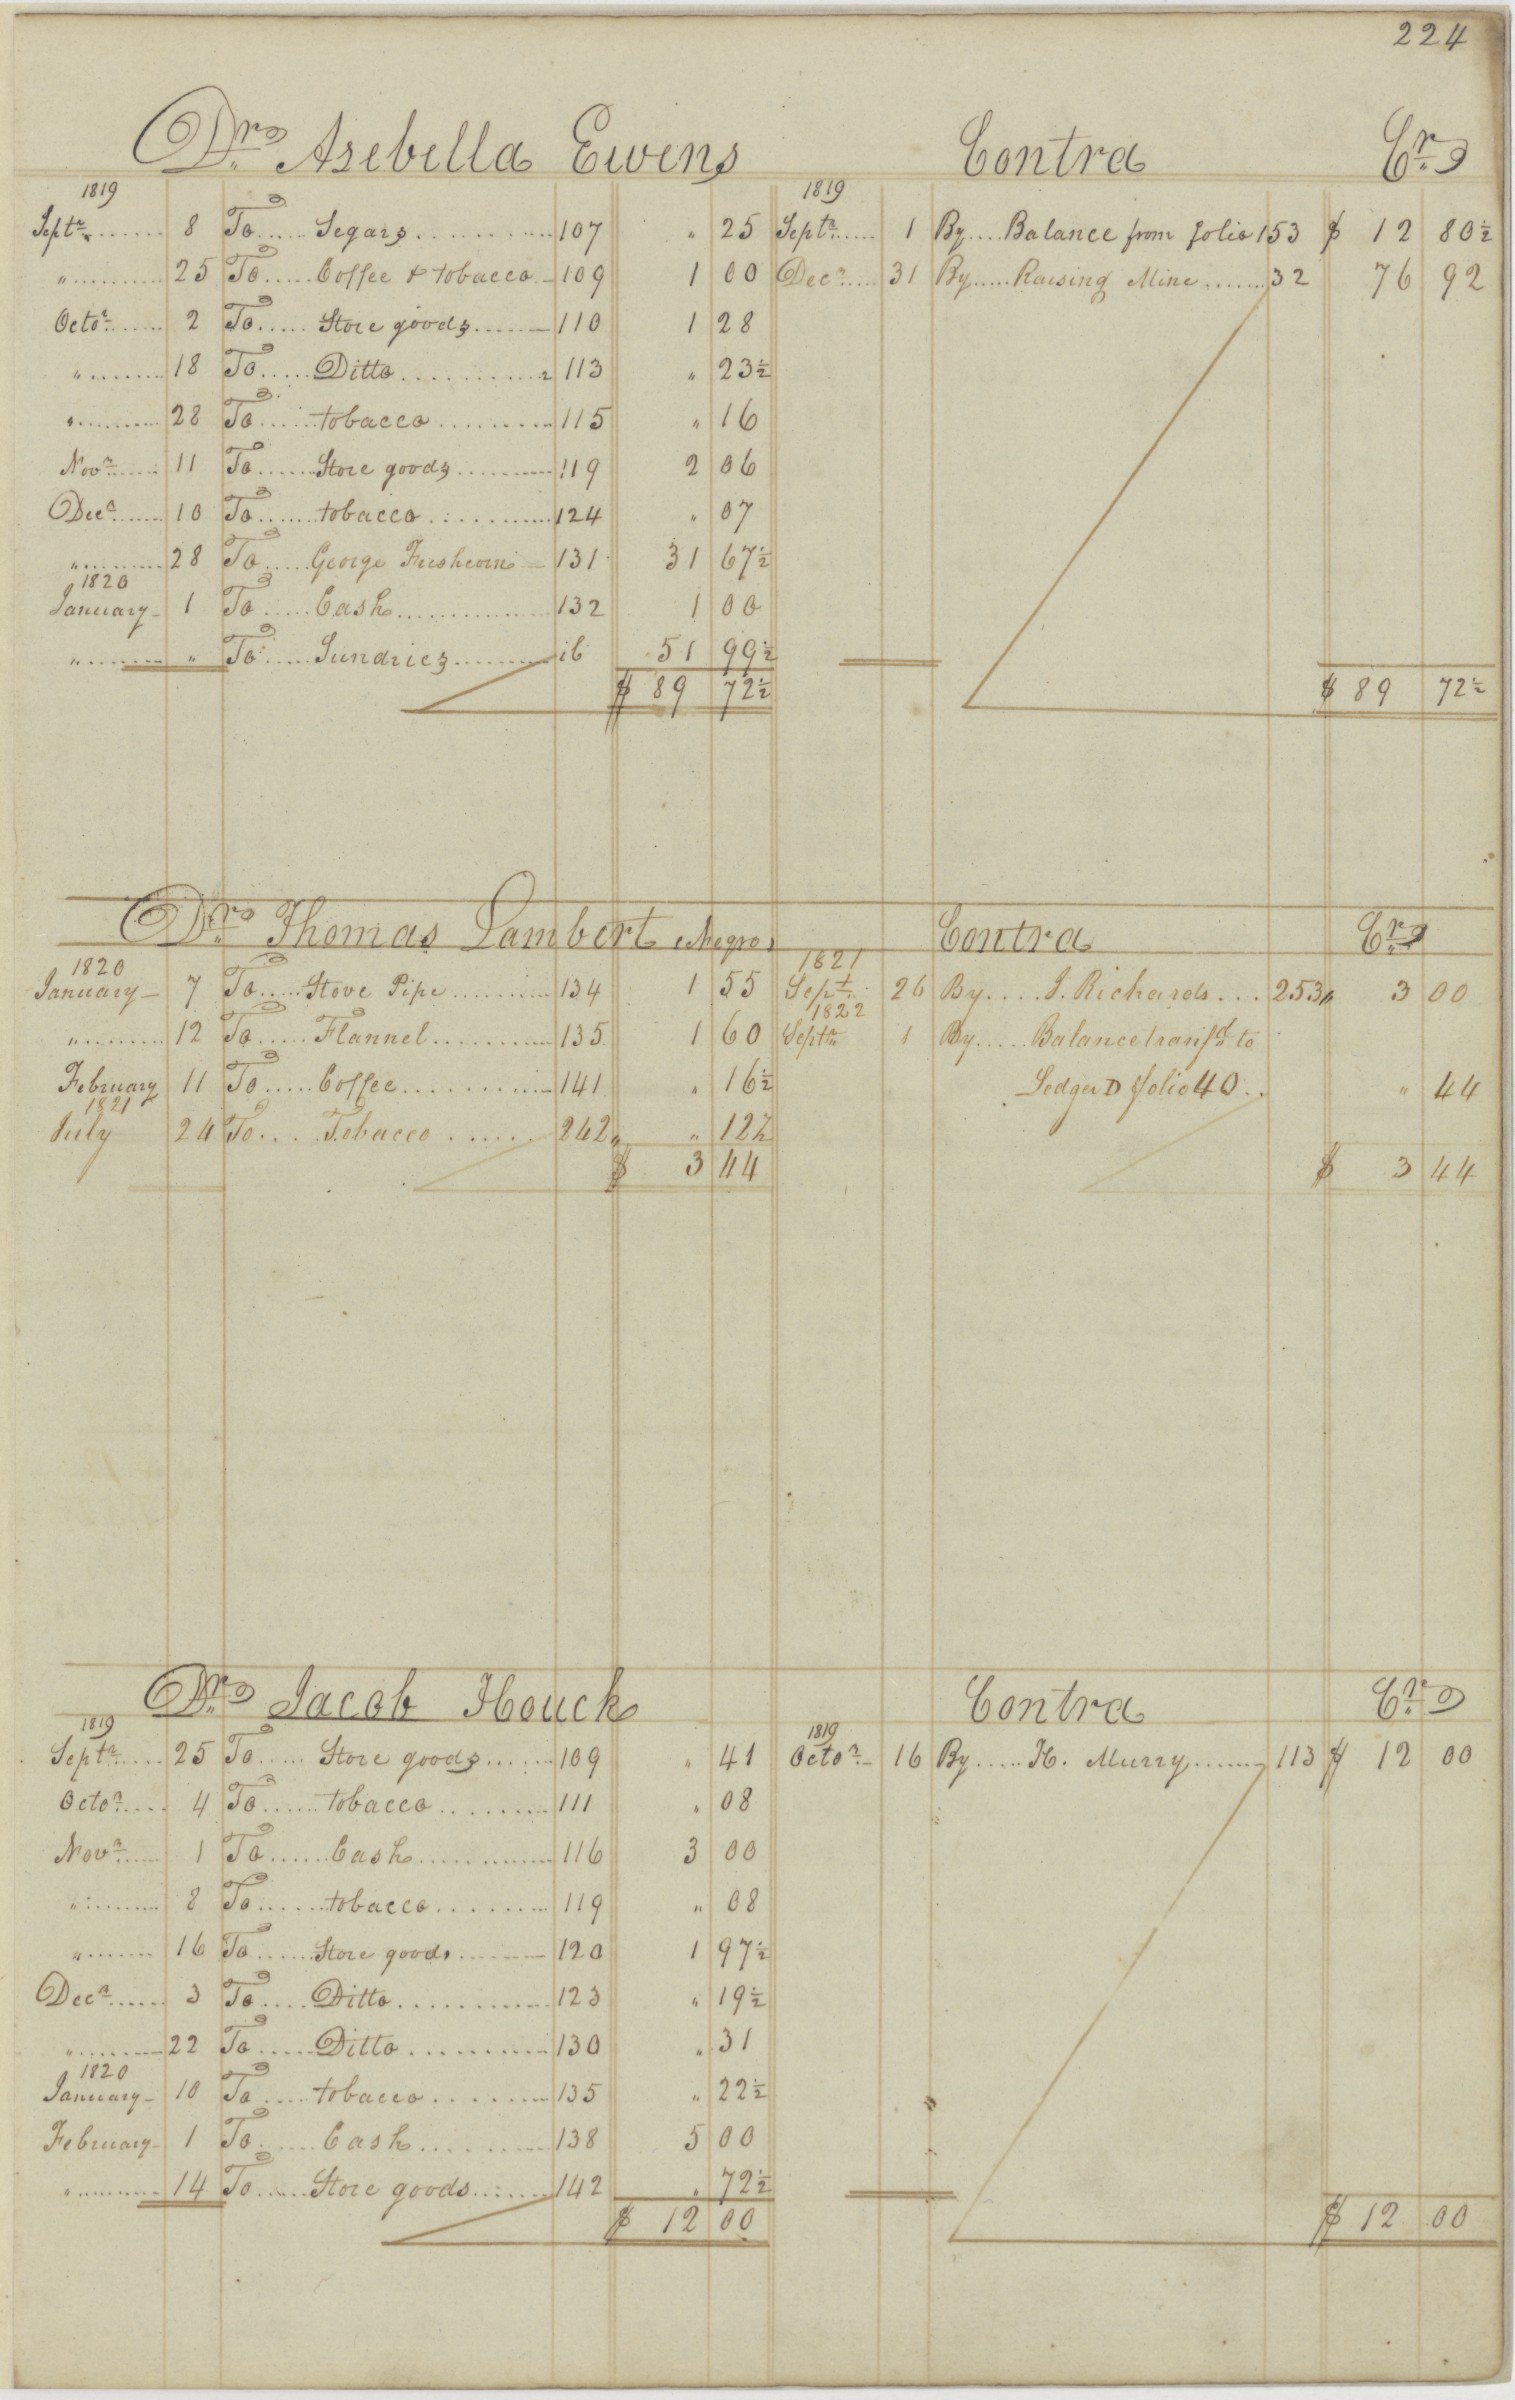 224
Drs Asebella Ewens Contra Crs
1819 1819
Septr 8 To Segars 107 " 25 Septr 1 By Balance from folio 153 $ 12 80½
" 25 To Coffee & tobacco 109 1 00 Decr 31 By Raising Mine 32 76 92
Octor 2 To Store goods 110 1 28
" 18 To Ditto 113 " 23½
" 28 To tobacco 115 " 16
Novr 11 To Store goods 119 2 06
Decr 10 To tobacco 124 " 07
" 28 To George 131 31 67½
1820
January 1 To Cash 132 1 00
" " To Sundries ib 51 99½
$ 89 72½ $ 89 72½
Drs Thomas Lambert (Negro) Contra Crs
1820 1821
January 7 To Stove Pipe 134 1 55 Sept. 26 By J. Richards 253 " 3 00
1822
" 12 To Flannel 135 1 60 Septr 1 By Balance transfd to
February 11 To Coffee 141 " 16½ Ledger D folio 40 " 44
1821
July 24 To Tobacco 242 " " 12½
$ 3 44 $ 3 44
Drs Jacob Houck Contra Crs
1819 1819
Septr 25 To Store goods 109 " 41 Octor 16 By H. Murry 113 $ 12 00
Octor 4 To tobacco 111 " 08
Novr 1 To Cash 116 3 00
" 8 To tobacco 119 " 08
" 16 To Store goods 120 1 97½
Decr 3 To Ditto 123 " 19½
" 22 To Ditto 130 " 31
1820
January 10 To tobacco 135 " 22½
February 1 To Cash 138 5 00
" 14 To Store goods 142 " 72½
$ 12 00 $ 12 00